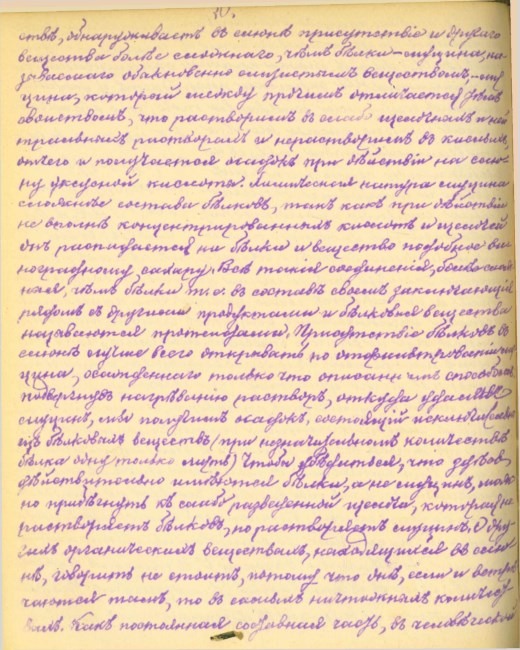 10.
ствѣ, обнаруживаетъ въ слюнѣ присутствіе и другого
вещества болѣе сложнаго, чѣмъ бѣлки – муцина, на-
зываемаго обыкновенно слизистымъ веществомъ, – му
цина, который между прочимъ отличается тѣмъ
свойствомъ, что растворимъ въ слабо щелочныхъ и ней
тральныхъ растворахъ и нерастворимъ въ кислыхъ,
отчего и получается осадокъ при дѣйствіи на слю-
ну уксусной кислоты. Химическая натура муцина
сложнѣе состава бѣлковъ, такъ какъ при дѣйствіи
не вполнѣ концентрированныхъ кислотъ и щелочей
онъ распадается на бѣлки и вещество подобное ви
ноградному сахару. Всѣ такія соединенія, болѣе слож
ныя, чѣмъ бѣлки т.е. въ составѣ своемъ заключающія
рядомъ съ другими продуктами и бѣлковыя вещества
называются протеидами. Присутствіе бѣлковъ въ
слюнѣ лучше всего открывать по отфильтрованіи му
цина, осажденнаго только что описаннымъ способомъ
подвергнувъ нагрѣванію растворъ, откуда удаленъ
муцинъ, мы получимъ осадокъ, состоящій исключительно
изъ бѣлковыхъ веществъ (при незначительномъ количествѣ
бѣлка одну только муть) Чтобы убѣдиться, что здѣсь
дѣйствительно имѣются бѣлки, а не муцинъ, мож
но прибѣгнуть къ слабо разведенной щелочи, которая не
растворяетъ бѣлковъ, но растворяетъ муцинъ. О дру
гихъ органическихъ веществахъ, находящихся въ слю
нѣ, говорить не стоитъ, потому что онѣ, если и встрѣ
чаются тамъ, то въ самыхъ ничтожныхъ количест
вахъ. Какъ постоянная составная часть, въ человѣческой